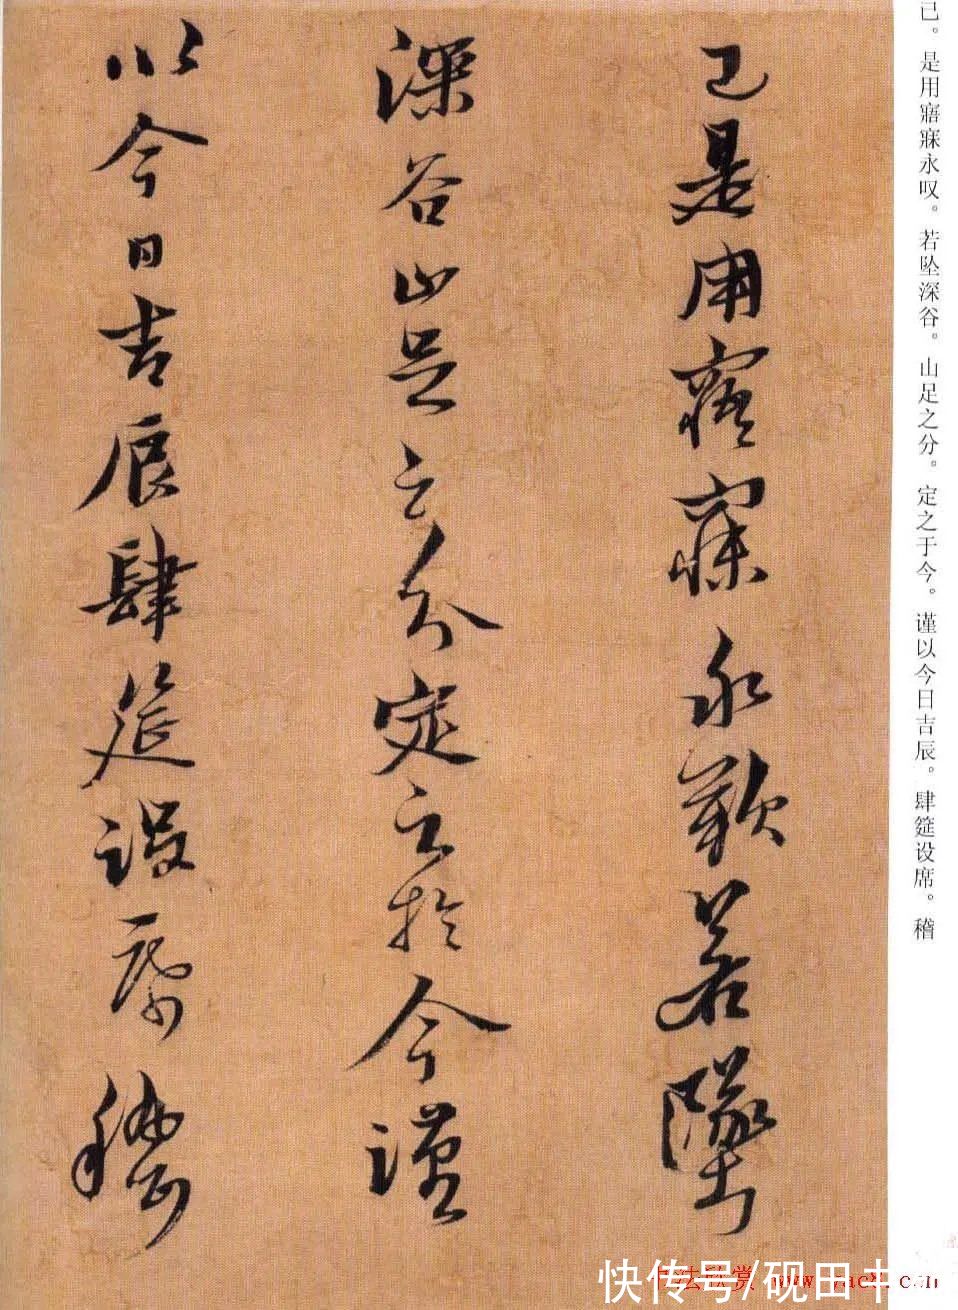 己。是用寤寐永叹。若坠深谷。山足之分。定之于今。谨以今日吉辰。肆筵设席。稽
已是用寤寐永歎若墜
深谷山足之分定之於今謹
以今日吉辰肆筵設席稽
书法欣赏 www.yac8.com
快传号/砚田书